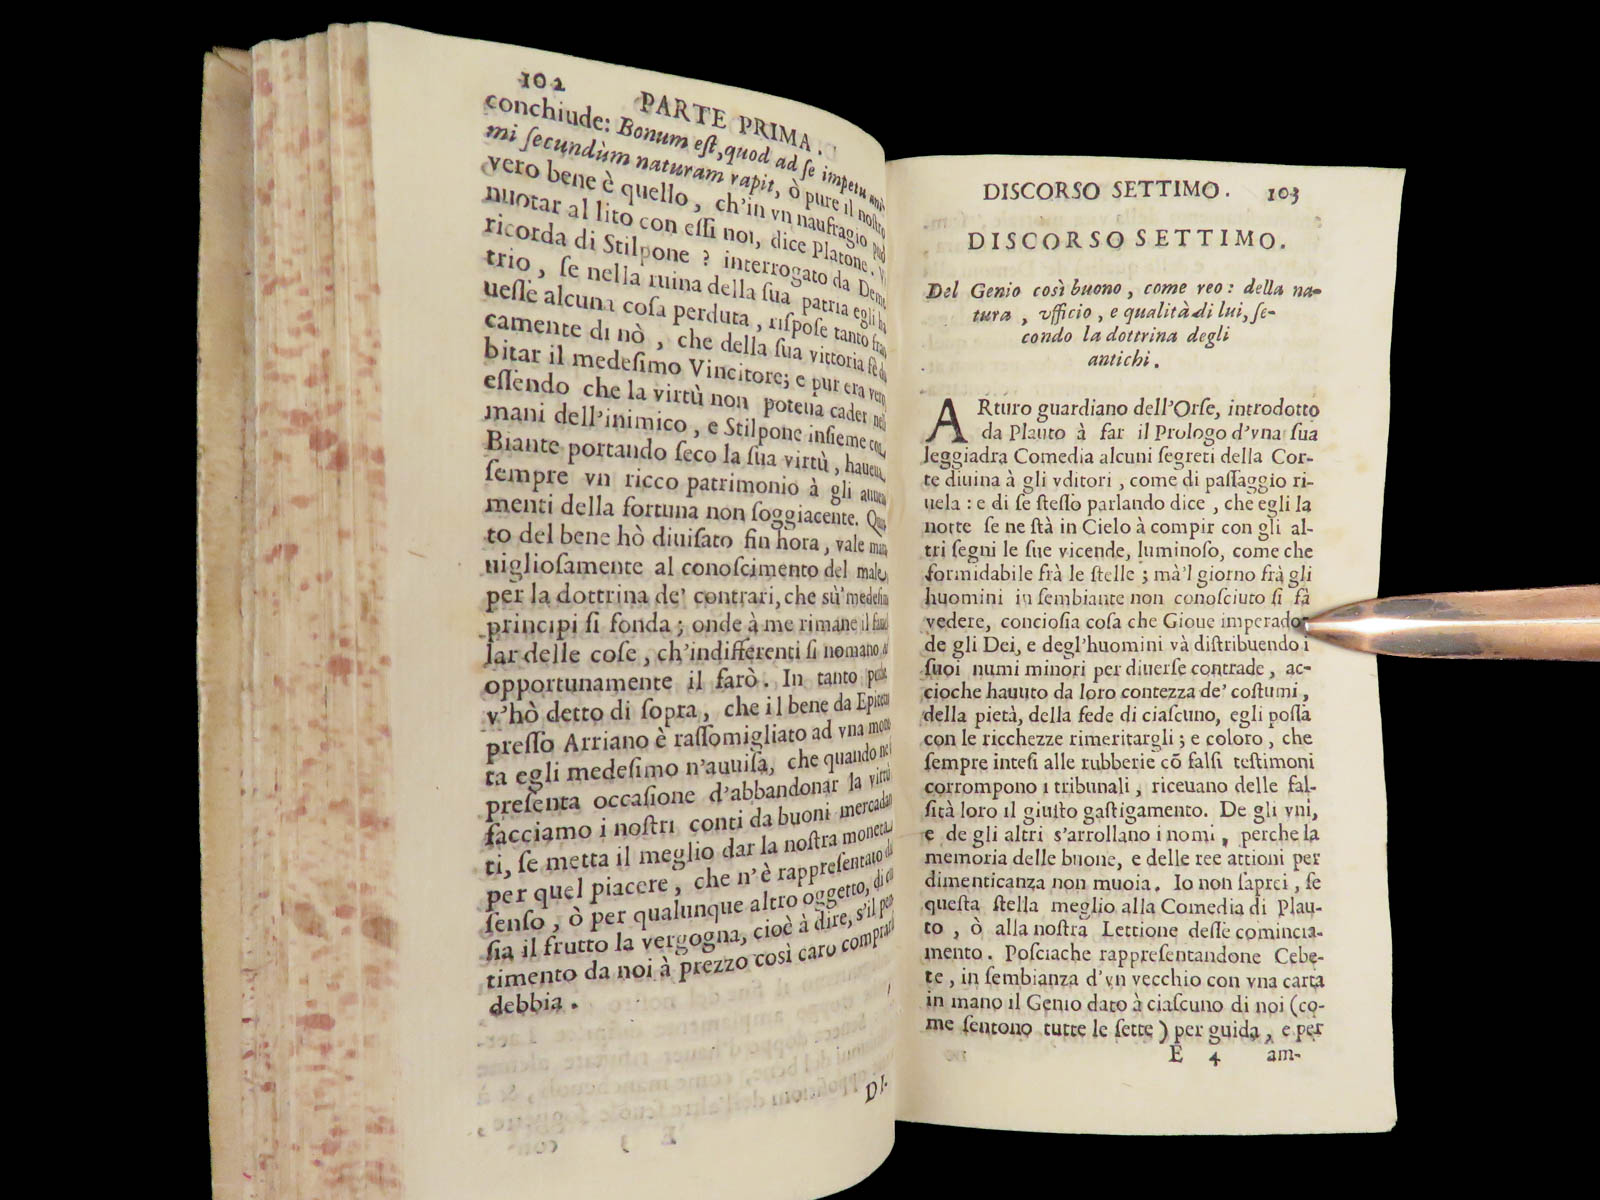 102
PARTE PRIMA.
conchiude: Bonum eſt, quod ad ſe impetu ani-
mi ſecundùm naturam rapit, ò pure il noſtro
vero bene è quello, ch'in vn naufragio può
nuotar al lito con eſſi noi, dice Platone. Vi
ricorda di Stilpone ? interrogato da Deme
trio, ſe nella ruina della ſua patria egli ha
ueſſe alcuna coſa perduta, riſpoſe tanto fran
camente di nò, che della ſua vittoria fè du
bitar il medeſimo Vincitore; e pur era vero
eſſendo che la virtù non poteua cader nelle
mani dell'inimico, e Stilpone inſieme con
Biante portando ſeco la ſua virtù, haueua
ſempre vn ricco patrimonio à gli auueni
menti della fortuna non ſoggiacente. Quan
to del bene hò diuiſato fin hora, vale mara
uiglioſamente al conoſcimento del male,
per la dottrina de' contrari, che sù' medeſimi
principi ſi fonda; onde à me rimane il fauel
lar delle coſe, ch'indifferenti ſi nomano, &
opportunamente il farò. In tanto perche
v'hò detto di ſopra, che il bene da Epitetto
preſſo Arriano è raſſomigliato ad vna mone
ta egli medeſimo n'auuiſa, che quando ne ſi
preſenta occaſione d'abbandonar la virtù
facciamo i noſtri conti da buoni mercadan
ti, ſe metta il meglio dar la noſtra moneta
per quel piacere, che n'è rappreſentato dal
ſenſo, ò per qualunque altro oggetto, di cui
ſia il frutto la vergogna, cioè à dire, s'il pen
timento da noi à prezzo così caro comprarſi
debbia.
DI-
DISCORSO SETTIMO. 103
DISCORSO SETTIMO.
Del Genio così buono, come reo: della na-
tura, vfficio, e qualità di lui, ſe-
condo la dottrina degli
antichi.
ARturo guardiano dell'Orſe, introdotto
da Plauto à far il Prologo d'vna ſua
leggiadra Comedia alcuni ſegreti della Cor-
te diuina à gli vditori, come di paſſaggio ri-
uela: e di ſe ſteſſo parlando dice, che egli la
notte ſe ne ſtà in Cielo à compir con gli al-
tri ſegni le ſue vicende, luminoſo, come che
formidabile frà le ſtelle; mà'l giorno frà gli
huomini in ſembiante non conoſciuto ſi fà
vedere, concioſia coſa che Gioue imperador
de gli Dei, e degl'huomini và diſtribuendo i
ſuoi numi minori per diuerſe contrade, ac-
cioche hauuto da loro contezza de' coſtumi,
della pietà, della fede di ciaſcuno, egli poſſa
con le ricchezze rimeritargli; e coloro, che
ſempre inteſi alle rubberie cõ falſi teſtimoni
corrompono i tribunali, riceuano delle fal-
ſità loro il giuſto gaſtigamento. De gli vni,
e de gli altri s'arrollano i nomi, perche la
memoria delle buone, e delle ree attioni per
dimenticanza non muoia. Io non ſaprei, ſe
queſta ſtella meglio alla Comedia di Plau-
to, ò alla noſtra Lettione deſſe comincia-
mento. Poſciache rappreſentandone Cebe-
te, in ſembianza d'vn vecchio con vna carta
in mano il Genio dato à ciaſcuno di noi (co-
me ſentono tutte le ſette) per guida, e per
E 4 am-